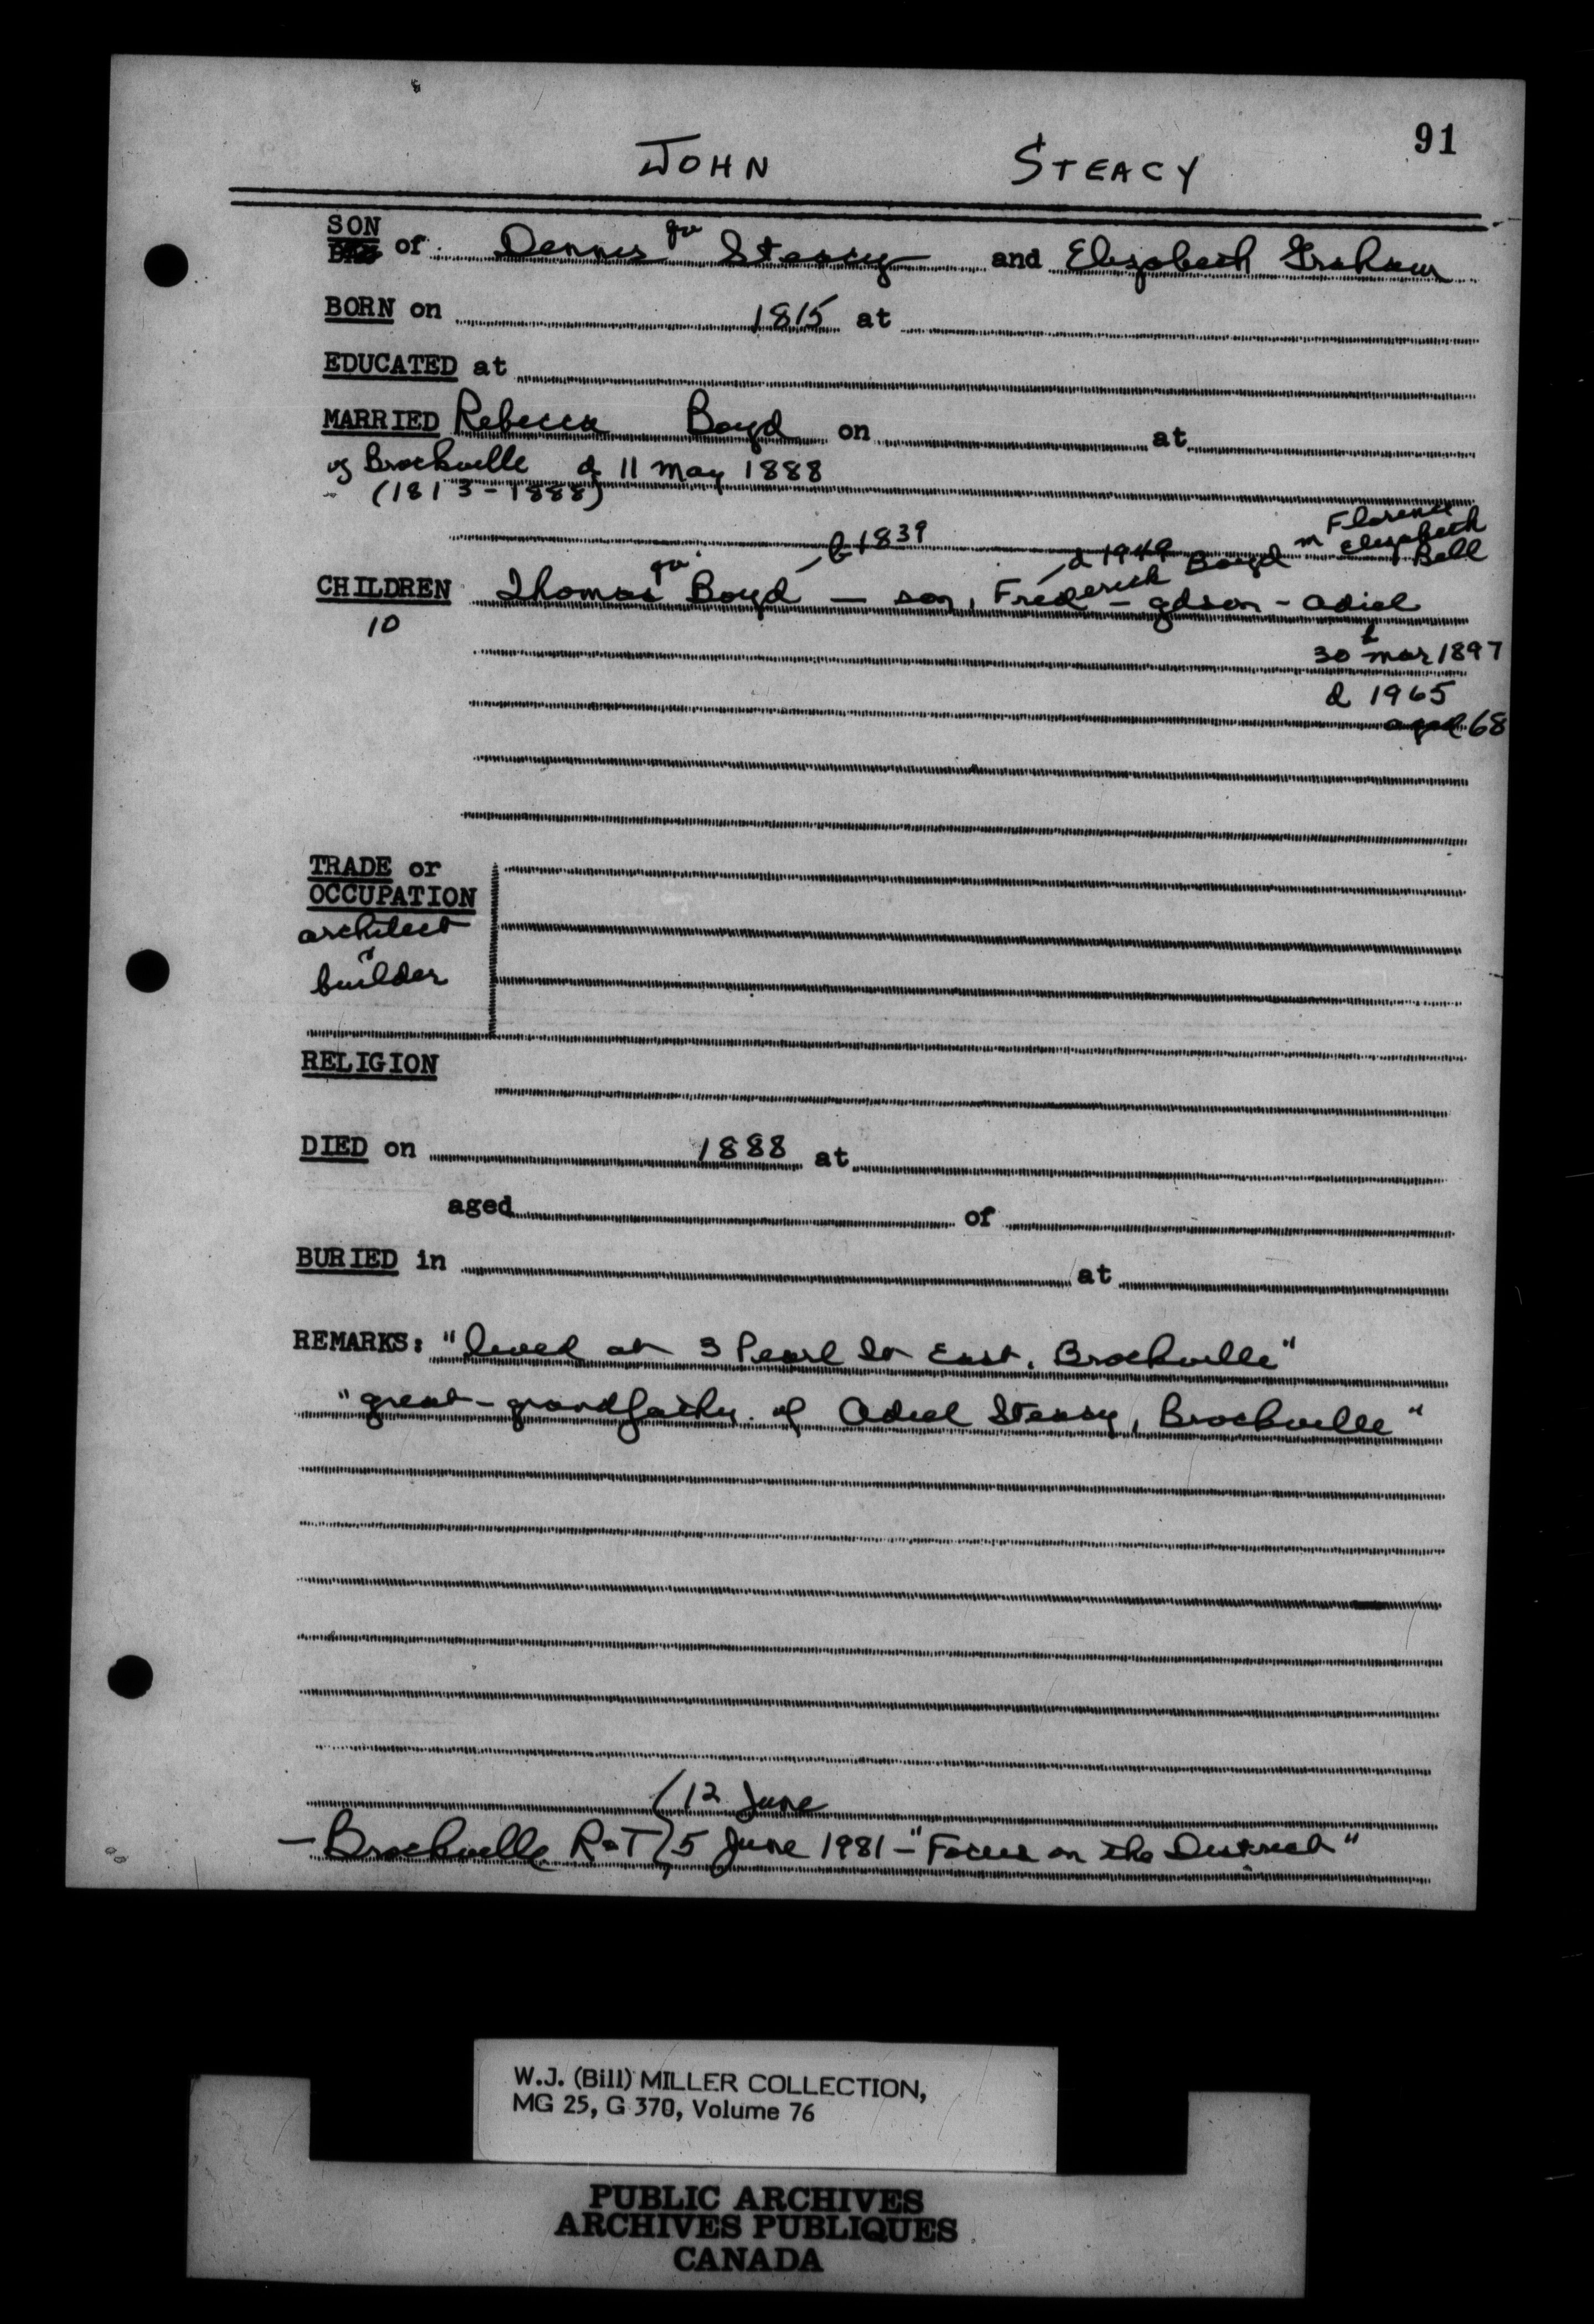 91
JOHN STEACY
SON of Dennis qv Steacy and Elizabeth Graham
BORN on 1815 at
EDUCATED at
MARRIED Rebecca Boyd on at
of Brockville d 11 May 1888
(1813-1888)
b 1839 d 1949 m Florence Elizabeth Bell
CHILDREN Thomas qv Boyd — son, Frederick Boyd - gdson - Adiel
10
b
30 Mar 1897
d 1965
aged 68
TRADE or
OCCUPATION
architect
&
builder
RELIGION
DIED on 1888 at
aged of
BURIED in at
REMARKS: "lived at 3 Pearl St East, Brockville"
"great-grandfather of Adiel Steacy, Brockville"
12 June
- Brockville R&T 5 June 1981 - "Focus on the District"
W.J. (Bill) MILLER COLLECTION,
MG 25, G 370, Volume 76
PUBLIC ARCHIVES
ARCHIVES PUBLIQUES
CANADA